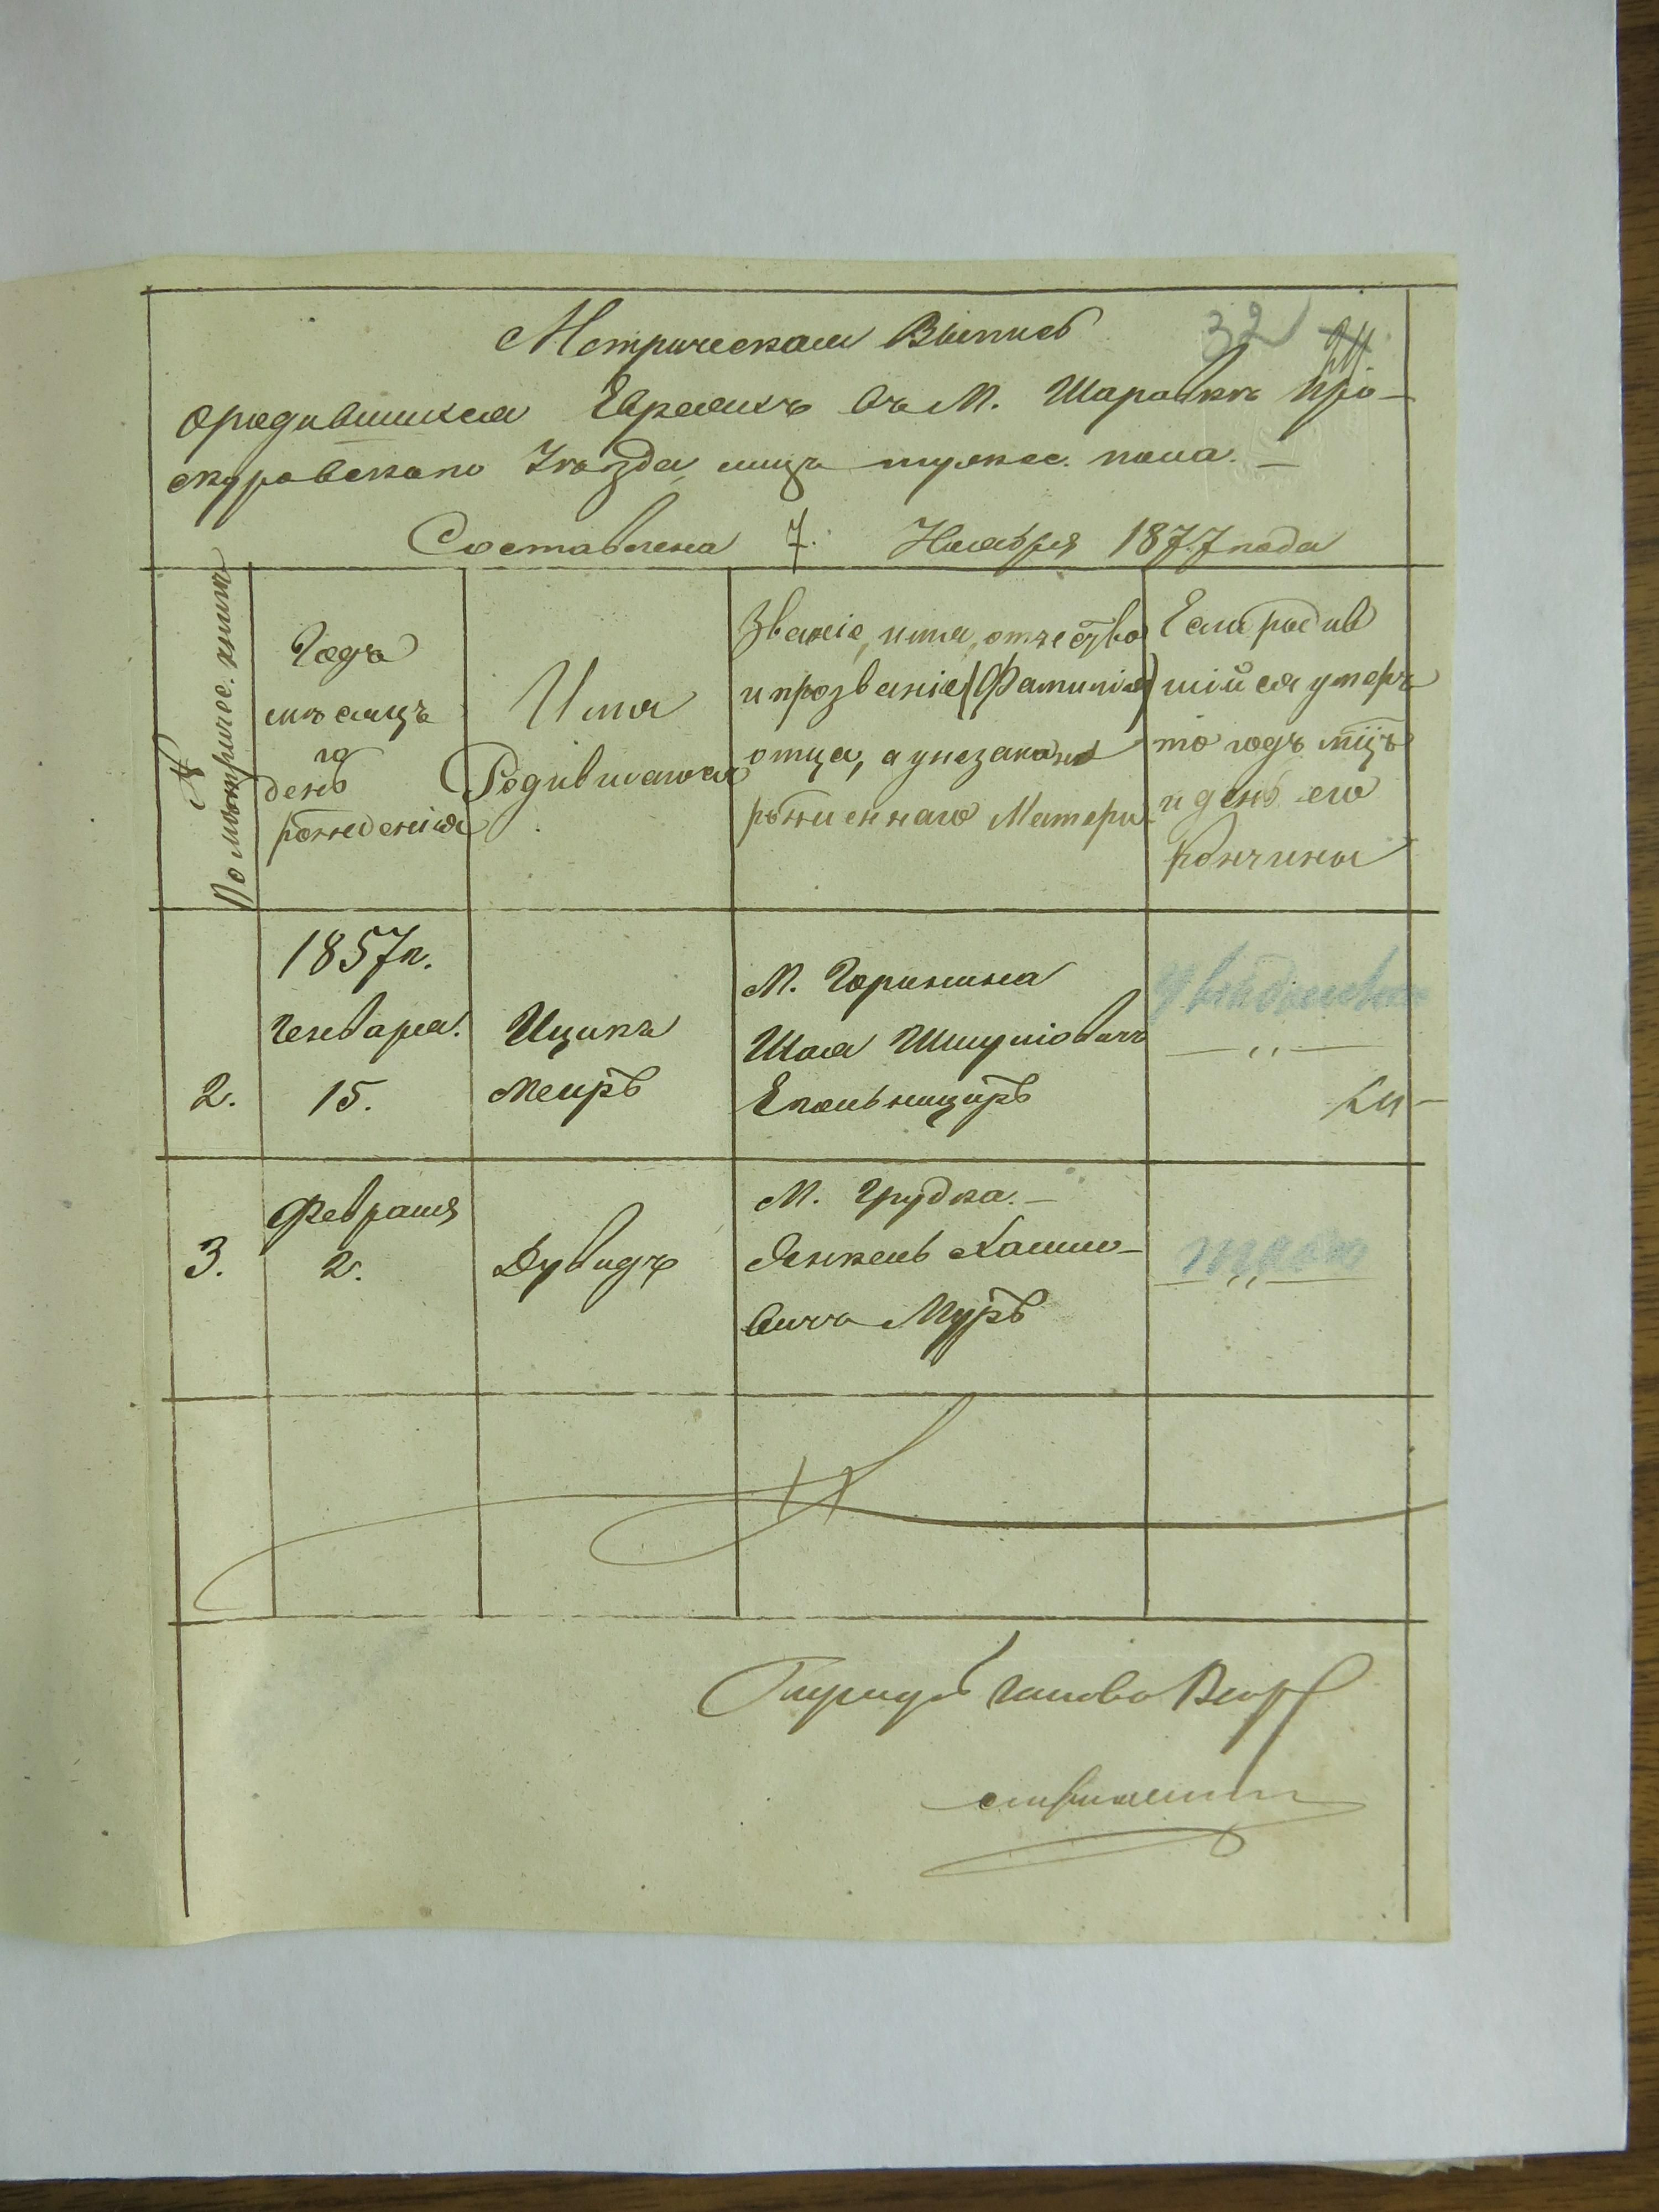 32 24
Метрическая Выпись
ородившихся Евреяхъ въ М. Шаравкѣ Про-
скуровскаго Уѣзда, лицъ мужес. пола. —
Составлена 7. Ноября 1877 года
№ По метричес. книгѣ
Годъ
мѣсяцъ
и
день
рожденія
Имя
Родившагося
Званіе, имя, отчество
и прозваніе (Фамилія)
отца, а у незакон
рожденнаго Матери
Если родив
шійся умеръ
то годъ мцъ
и день его
кончины
2.
1857 г.
Генваря.
15.
Ицикъ
Меиръ
М. Горинина
Шая Шмулiовичъ
— „ —
3.
Февраля
2.
Дувидъ
М. Грудка. —
Янкель Хаимо-
вичъ Муръ
— „ —